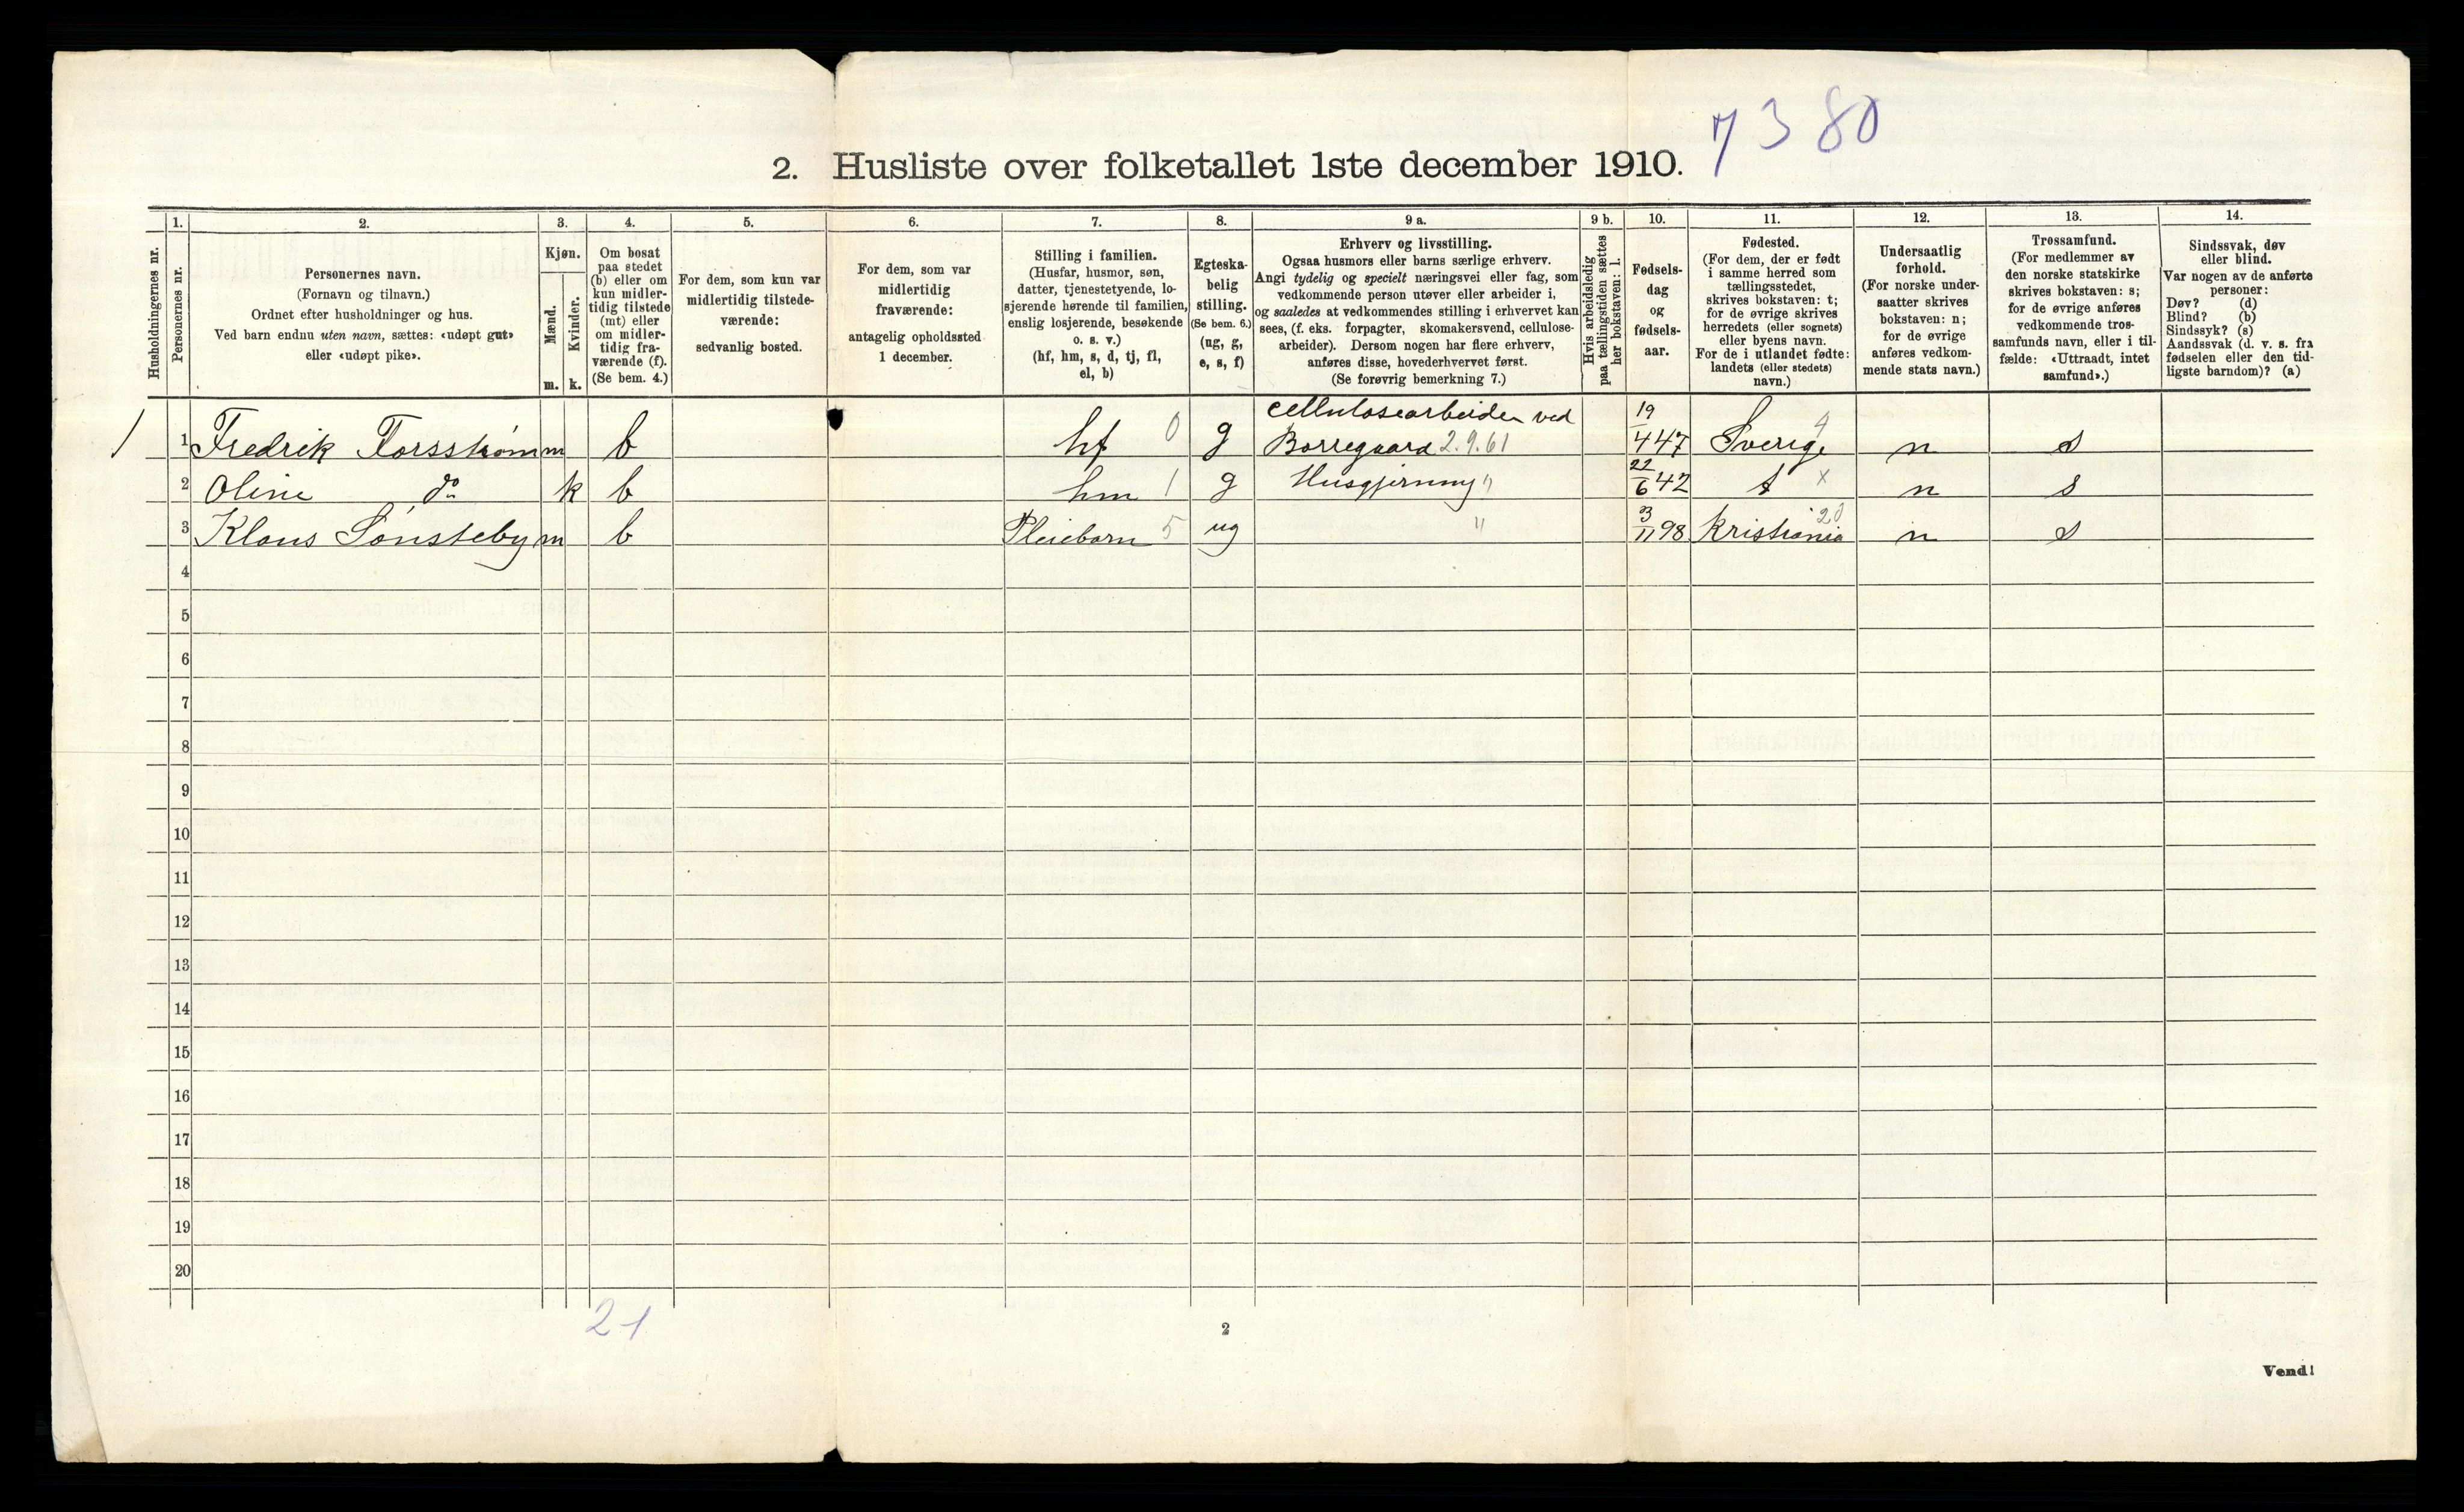 7 3 80
2. Husliste over folketallet 1ste december 1910.
Husholdningernes nr.
1.
Personernes nr.
2.
Personernes navn.
(Fornavn og tilnavn.)
Ordnet efter husholdninger og hus.
Ved barn endnu uten navn, sættes: «udøpt gut»
eller «udøpt pike».
3.
Kjøn.
Mænd.
m.
Kvinder.
k.
4.
Om bosat
paa stedet
(b) eller om
kun midler-
tidig tilstede
(mt) eller
om midler-
tidig fra-
værende (f).
(Se bem. 4.)
5.
For dem, som kun var
midlertidig tilstede-
værende:
sedvanlig bosted.
6.
For dem, som var
midlertidig
fraværende:
antagelig opholdssted
1 december.
7.
Stilling i familien.
(Husfar, husmor, søn,
datter, tjenestetyende, lo-
sjerende hørende til familien,
enslig losjerende, besøkende
o. s. v.)
(hf, hm, s, d, tj, fl,
el, b)
8.
Egteska-
belig
stilling.
(Se bem. 6.)
(ug, g,
e, s, f)
9 a.
Erhverv og livsstilling.
Ogsaa husmors eller barns særlige erhverv.
Angi tydelig og specielt næringsvei eller fag, som
vedkommende person utøver eller arbeider i,
og saaledes at vedkommendes stilling i erhvervet kan
sees, (f. eks. forpagter, skomakersvend, cellulose-
arbeider). Dersom nogen har flere erhverv,
anføres disse, hovederhvervet først.
(Se forøvrig bemerkning 7.)
9 b.
Hvis arbeidsledig
paa tællingstiden sættes
her bokstaven: l.
10.
Fødsels-
dag
og
fødsels-
aar.
11.
Fødested.
(For dem, der er født
i samme herred som
tællingsstedet,
skrives bokstaven: t;
for de øvrige skrives
herredets (eller sognets)
eller byens navn.
For de i utlandet fødte:
landets (eller stedets)
navn.)
12.
Undersaatlig
forhold.
(For norske under-
saatter skrives
bokstaven: n;
for de øvrige
anføres vedkom-
mende stats navn.)
13.
Trossamfund.
(For medlemmer av
den norske statskirke
skrives bokstaven: s;
for de øvrige anføres
vedkommende tros-
samfunds navn, eller i til-
fælde: «Uttraadt, intet
samfund».)
14.
Sindssvak, døv
eller blind.
Var nogen av de anførte
personer:
Døv? (d)
Blind? (b)
Sindssyk? (s)
Aandssvak (d. v. s. fra
fødselen eller den tid-
ligste barndom)? (a)
1 1 Fredrik Forsstrøm m b hf 0 g cellulosearbeider ved
Borregaard 2.9.61 19/4 47 Sverige 4 n s
2 Oline do k b hm 1 g Husgjerning " 22/6 42 t x n s
3 Klaus Sønsteby m b Pleiebarn 5 ug " 3/11 98 Kristiania 20 n s
4
5
6
7
8
9
10
11
12
13
14
15
16
17
18
19
20
2-1
2
Vend!